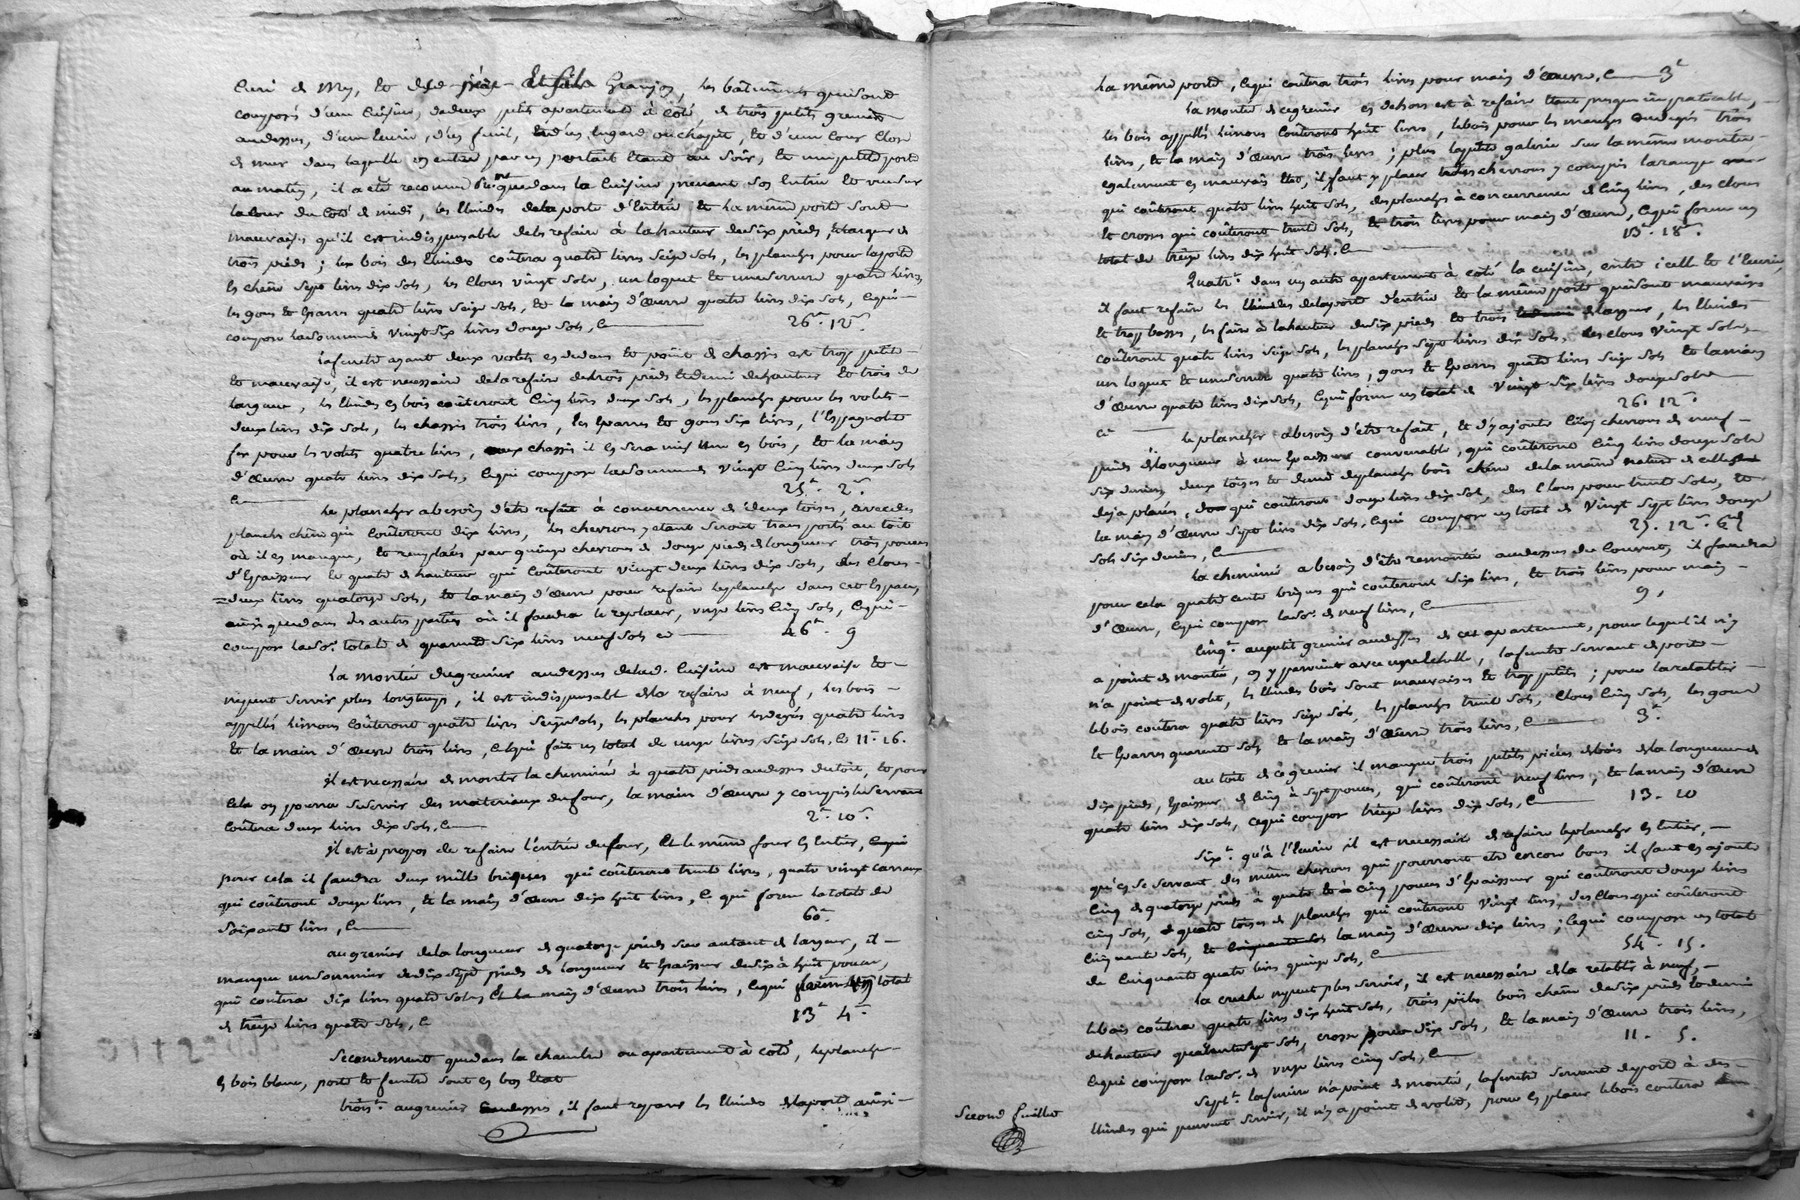 et fils Granjon, les bâtiments qui sont
composés d'une cuisine, de deux petits apartements à côté, de trois petits greniers
audessus, d'une Ecurie, d'un fenil, ou chapit, et d'une cour close
de murs dans laquelle on entre par un portail étant au soir, et une petite porte
au matin, il a été reconnu que dans la cuisine prenant son entrée et vue sur
la cour du coté de midi, les Eluides de la porte d'entrée et la même porte sont
mauvaises qu'il est indispensable de les refaire à la hauteur de six pieds, et largeur de
trois pieds ; les bois des Eluides coûtera quatre livres seize sols, les planches pour la porte
en chêne sept livres dix sols, les clous vingt sols, un loquet et une serrure quatre livres,
les gons et Eparres quatre livres seize sols, et la main d'Œuvre quatre livres dix sols, cequi
compose la somme de vingt six livres douze sols, C 26. 12.
La fenêtre ayant deux volets en dedans et point de chassis est trop petite
et mauvaise, il est necessaire de la refaire de trois pieds et demi de hauteur et trois de
largeur, les Eluides en bois coûteront cinq livres deux sols, les planches pour les volets
deux livres dix sols, les chassis trois livres, les Eparres et gons six livres, l'Espagnolette
fer pour les volets quatre livres, aux chassis il en sera mis une en bois, et la main
d'Œuvre quatre livres dix sols, cequi compose la somme de vingt cinq livres deux sols
C 25. 2.
Le plancher a besoin d'être refait à concurrence de deux toises, avec des
planches chêne qui coûteront dix livres, les chevrons y étant seront transportés au toit
où il en manque, et remplacés par quinze chevrons de douze pieds de longueur trois pouces
d'Epaisseur et quatre de hauteur qui coûteront vingt deux livres dix sols, des clous
deux livres quatorze sols, et la main d'Œuvre pour refaire le plancher dans cet Espace,
ainsi que dans des autres parties où il faudra le replacer, onze livres cinq sols, cequi
compose la so. totale de quarante six livres neuf sols C 46. 9
La montée du grenier audessus de lad. Cuisine est mauvaise et
ne peut servir plus longtemps, il est indispensable de la refaire à neuf, les bois
appellés limons coûteront quatre livres seize sols, les planches pour les degrés quatre livres
et la main d'Œuvre trois livres, cequi fait un total de onze livres seize sols, C 11. 16.
Il est necessaire de monter la cheminée à quatre pieds audessus du toit, et pour
cela on pourra se servir des materiaux du four, la main d'Œuvre y compris le servant
coûtera deux livres dix sols, C 2. 10.
Il est à propos de refaire l'entrée du four, et le même four en Entier,
pour cela il faudra deux mille briques qui coûteront trente livres, quatre vingt carraux
qui coûteront douze livres, et la main d'Œuvre dix huit livres, C qui forme la totale de
soixante livres, C 60.
au grenier de la longueur de quatorze pieds sur autant de largeur, il
manque un sommier de dix sept pieds de longueur et Epaisseur de six à huit pouces,
qui coûtera dix livres quatre sols, et la main d'Œuvre trois livres, cequi forme un total
de treize livres quatre sols, C 13. 4.
Secondement que dans la chambre ou apartement à coté, le plancher
en bois blanc, porte et fenêtre sont en bon Etat
Trois.t au grenier audessus, il faut reparer les Eluides de la porte ainsi
la même porte, cequi coûtera trois livres pour main d'œuvre, C 3
La montée de ce grenier en dehors est à refaire étant presque impraticable,
les bois appellés limons coûteront huit livres, le bois pour les marches ou degrés trois
livres, et la main d'Œuvre trois livres ; plus la petite galerie sur la même montée
egalement en mauvais Etat, il faut y placer trois chevrons y compris la rampe
qui coûteront quatre livres huit sols, des planches à concurrence de cinq livres, des clous
et crosses qui coûteront trente sols, et trois livres pour main d'Œuvre, cequi forme un
total de treize livres dix huit sols, C 13. 18.
Quatr.t dans un autre apartement à coté la cuisine, entre icelle et l'Ecurie,
il faut refaire les Eluides de la porte d'entrée et la même porte qui sont mauvaises
et trop basses, les faire à la hauteur de six pieds et trois de largeur, les Eluides
coûteront quatre livres seize sols, les planches sept livres dix sols, les clous vingt sols,
un loquet et une serrure quatre livres, gons et Eparres quatre livres seize sols et la main
d'Œuvre quatre livres dix sols, cequi forme un total de vingt six livres douze sols
C 26. 12.
Le plancher a besoin d'être refait, et d'y ajouter cinq chevrons de neuf
pieds de longueur à une Epaisseur convenable, qui coûteront cinq livres douze sols
six deniers, deux toises et demie de planches bois chêne de la même nature de celles
deja placées, qui coûteront douze livres dix sols, des clous pour trente sols, et
la main d'Œuvre sept livres dix sols, cequi compose un total de vingt sept livres douze
sols six deniers, C 27. 12. 6
La cheminée a besoin d'être remontée audessus du couvert, il faudra
pour cela quatre cents briques qui coûteront six livres, et trois livres pour main
d'Œuvre, cequi compose la so. de neuf livres, C 9.
Cinq.t au petit grenier audessus de cet apartement, pour lequel il n'y
a point de montée, on y parvient avec une Echelle, la fenêtre servant de porte
n'a point de volet, les Eluides bois sont mauvaises et trop petites ; pour la retablir
le bois coûtera quatre livres seize sols, les planches trente sols, clous cinq sols, les gons
et Eparres quarante sols et la main d'Œuvre trois livres, C 3.
au toit de ce grenier il manque trois petites pièces de bois de la longueur de
dix pieds, Epaisseur de cinq à sept pouces, qui coûteront neuf livres, et la main d'Œuvre
quatre livres dix sols, cequi compose treize livres dix sols, C 13. 10
Six.t qu'à l'Ecurie il est necessaire de refaire le plancher en Entier,
qu'en se servant des mêmes chevrons qui pourront être encore bons il faut en ajouter
cinq de quatorze pieds à quatre et à cinq pouces d'Epaisseur qui coûteront douze livres
cinq sols, quatre toises de planches qui coûteront vingt livres, des clous qui coûteront
cinquante sols, et la main d'Œuvre dix livres ; cequi compose un total
de cinquante quatre livres quinze sols, C 54. 15.
La creche ne peut plus servir, il est necessaire de la retablir à neuf,
le bois coûtera quatre livres dix huit sols, trois piles bois chêne de six pieds et demi
de hauteur quarante sept sols, crosse pour dix sols, et la main d'Œuvre trois livres,
cequi compose la so. de onze livres cinq sols, C 11. 5.
Sept.t la feniere n'a point de montée, la fenêtre servant de porte à des
Eluides qui peuvent servir, il n'y a point de volet, pour en placer le bois coutera
Second feuillet